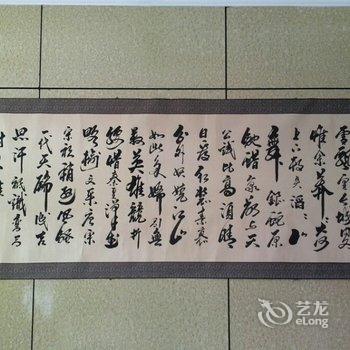 雪飘望长城内外
惟余莽莽大河
上下顿失滔滔山
舞银蛇原
驰蜡象欲与天
公试比高须晴
日看红装素裹
分外妖娆江山
如此多娇引无
数英雄竞折
腰惜秦皇汉武
略输文采唐宗
宋祖稍逊风骚
一代天骄成吉
思汗
射大雕
艺龙
eLong